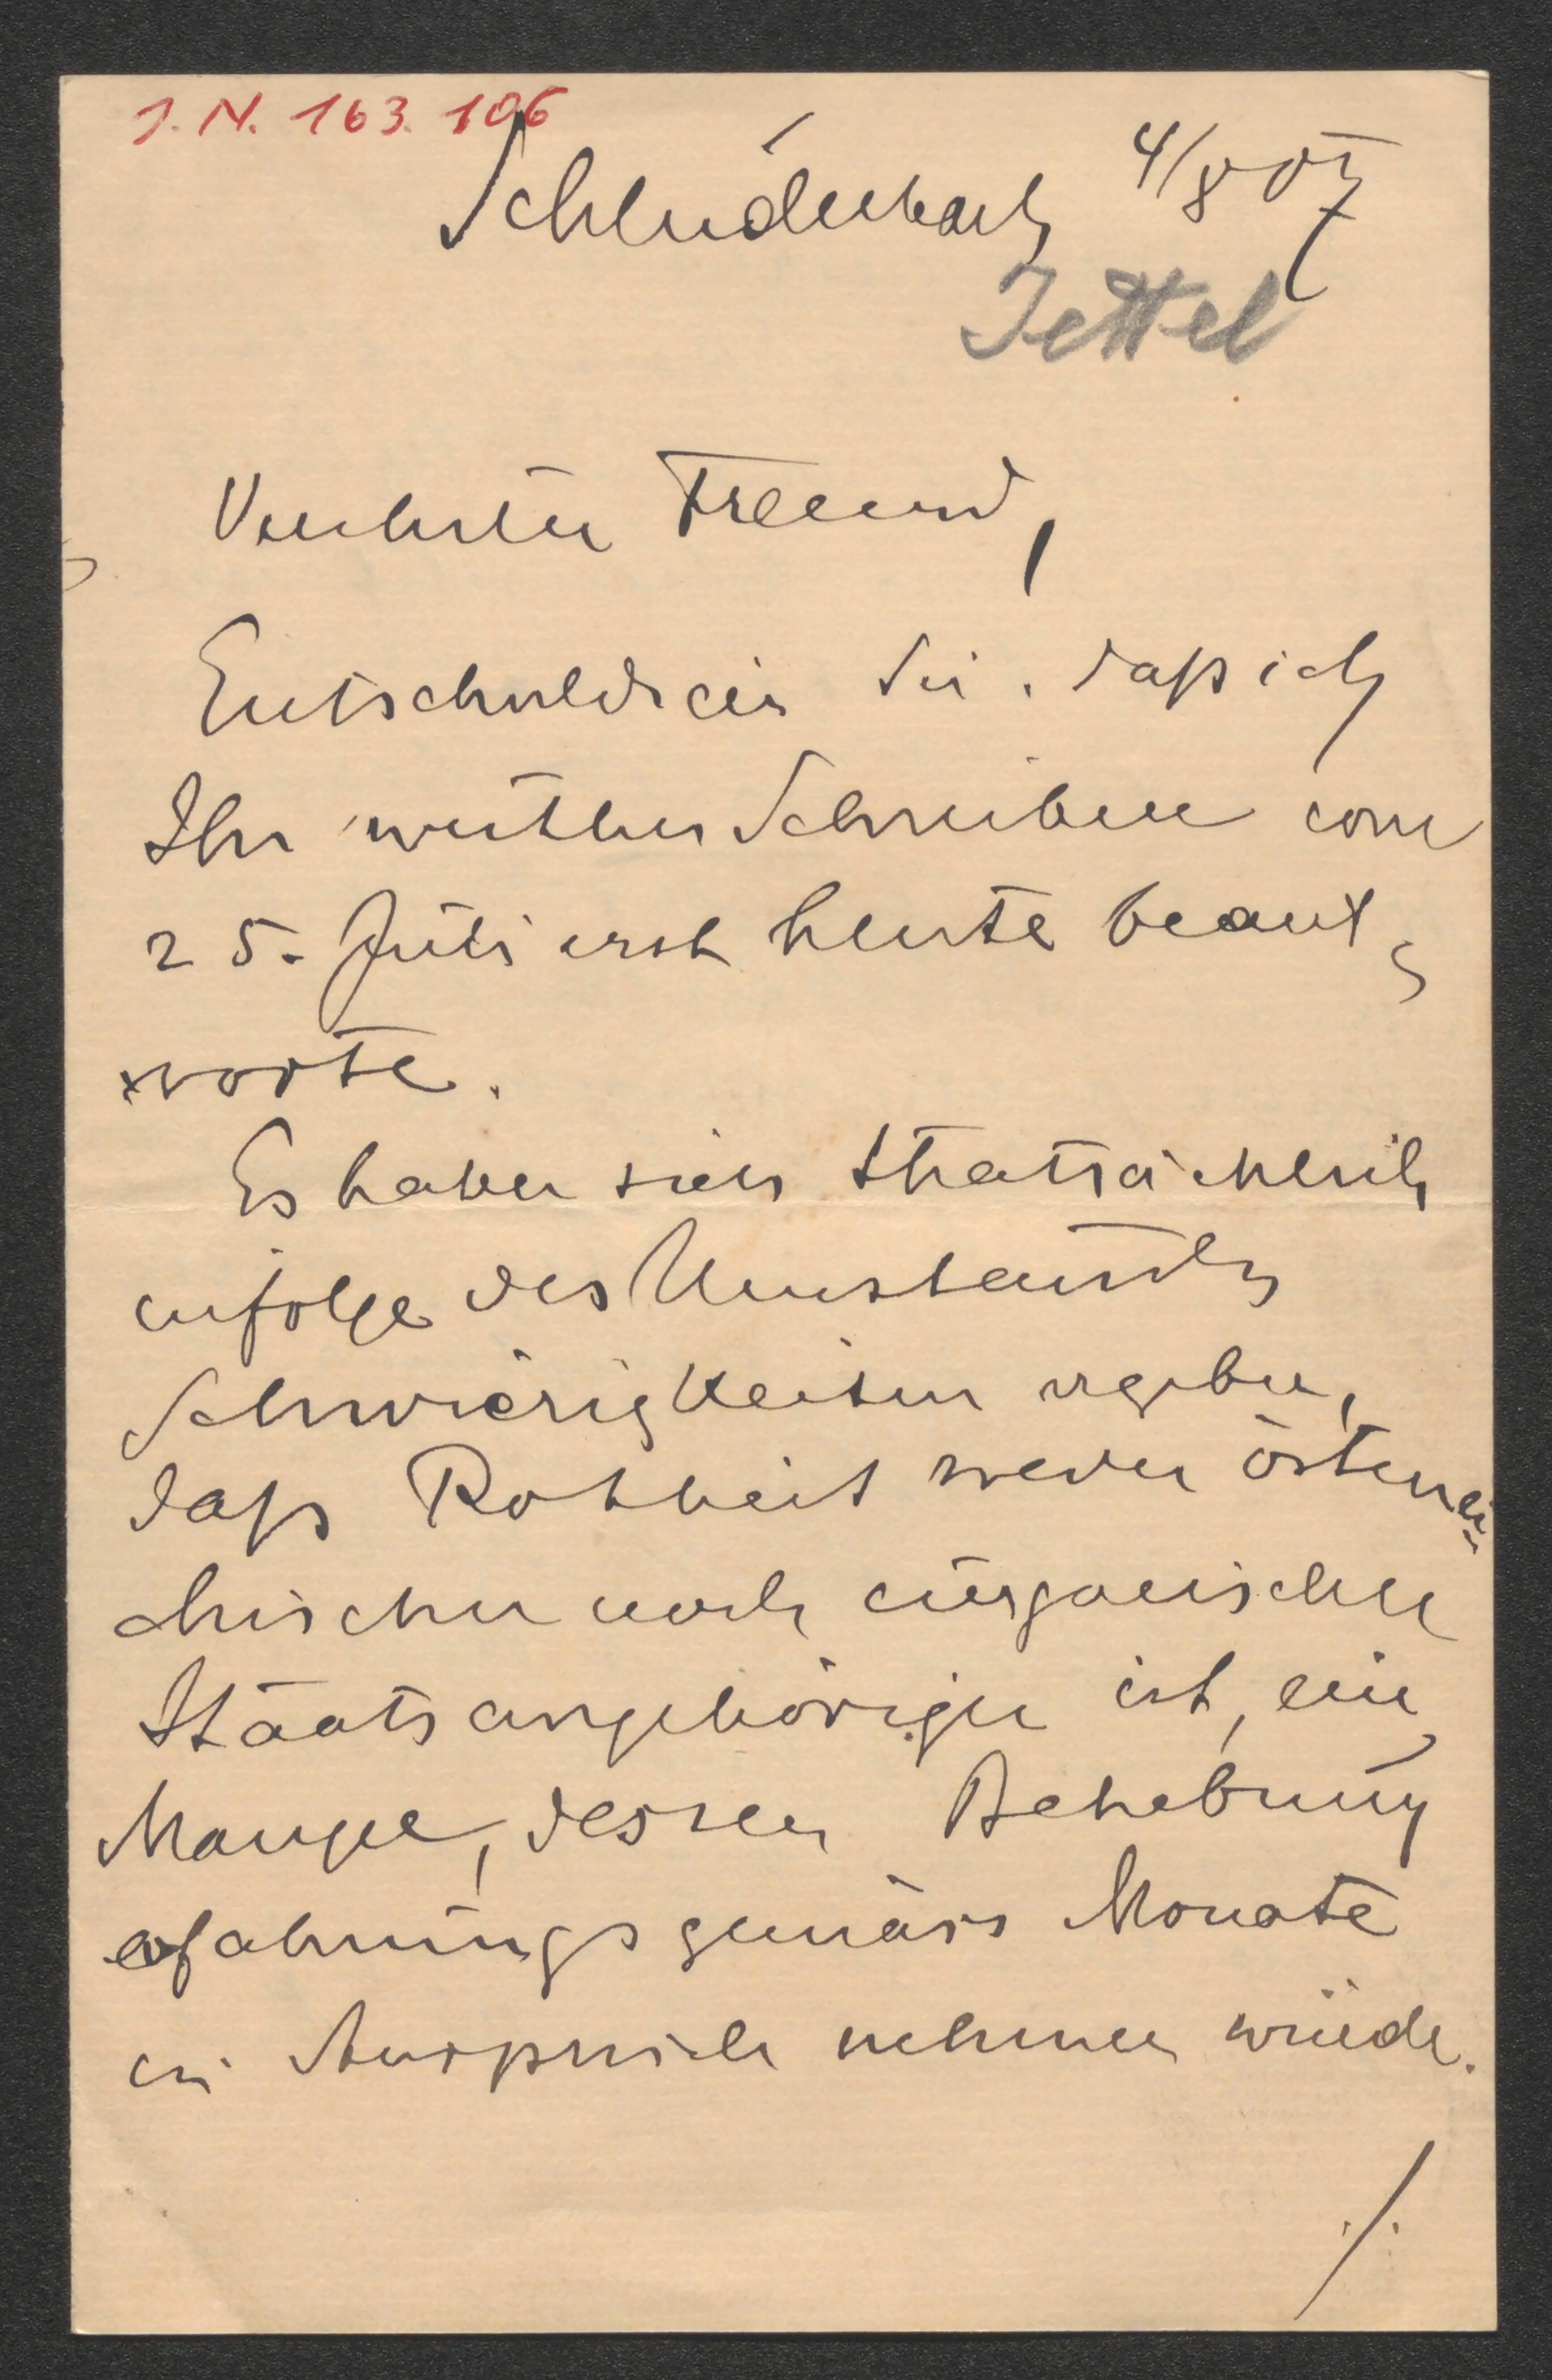 J. N. 163.106
Schluderbach 4/8 07
Jettel
Verehrter Freund,
Entschuldigen Sie, daß ich
Ihr werthes Schreiben vom
25. Juli erst heute beant-
worte.
Es haben sich thatsächlich
infolge des Umstandes
Schwierigkeiten ergeben,
daß Rotheit weder österrei-
chischer noch ungarischer
Staatsangehöriger ist, ein
Mangel, dessen Behebung
erfahrungsgemäss Monate
in Anspruch nehmen würde.
./.